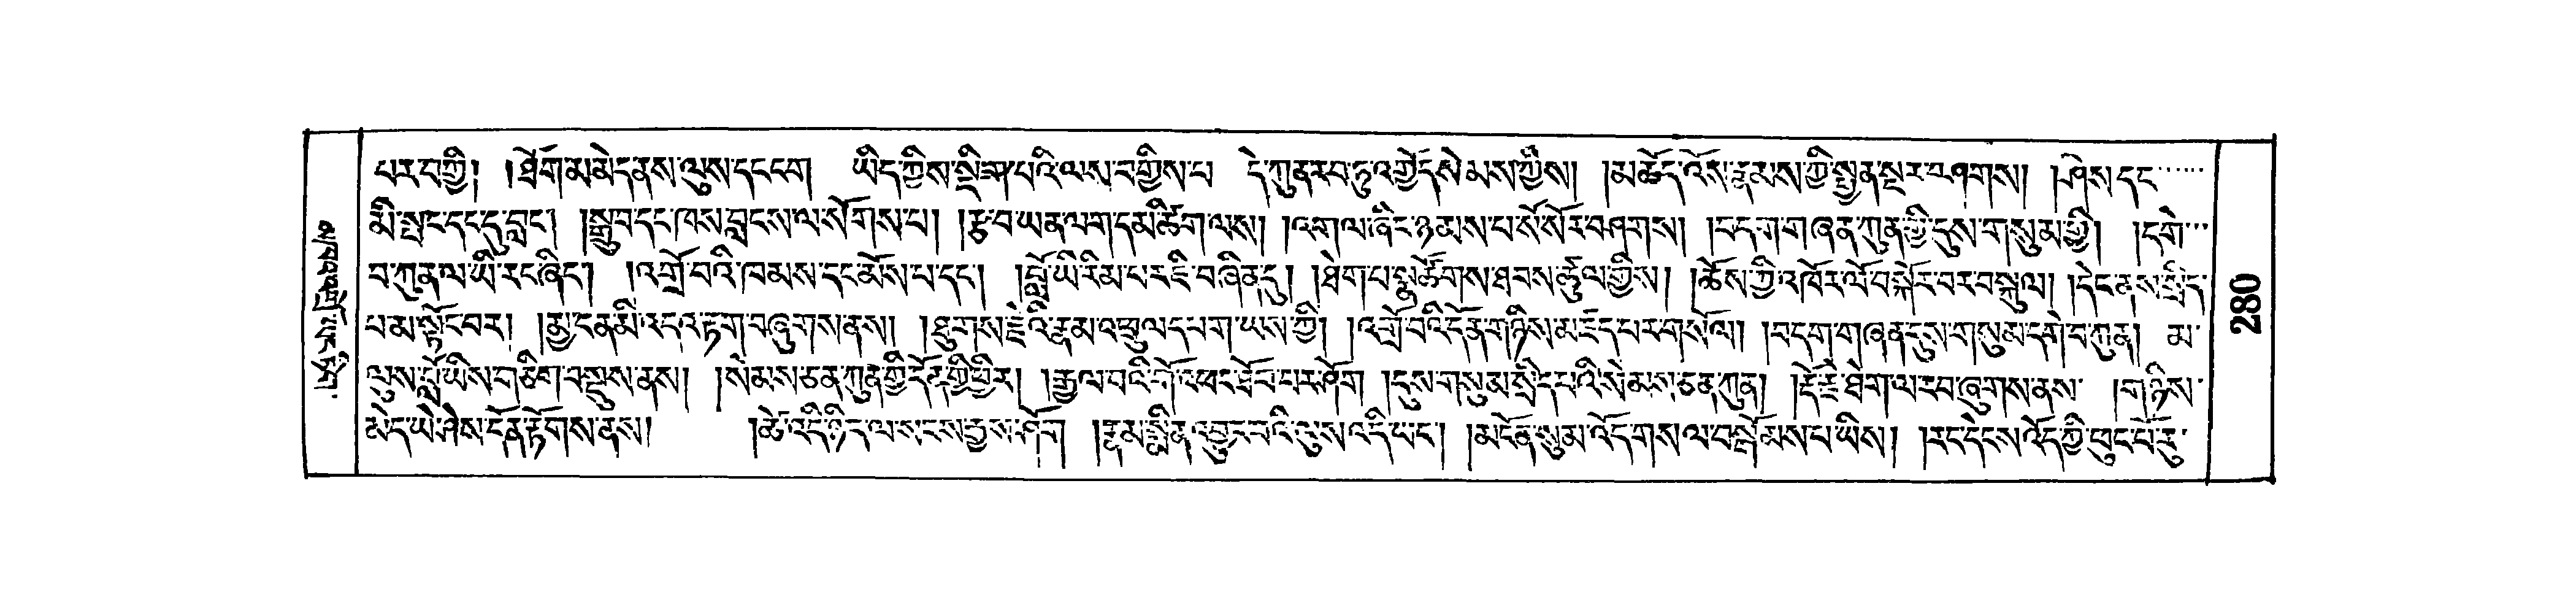 པར་བགྱི། །ཐོག་མ་མེད་ནས་ལུས་དང་ངག ཡིད་ཀྱིས་སྡིག་པའི་ལས་བགྱིས་པ དེ་ཀུན་རབ་ཏུ་འགྱོད་སེམས་ཀྱིས། །མཆོད་འོས་རྣམས་ཀྱི་སྤྱན་སྔར་བཤགས། །ཤེས་དང་……
མི་སྤང་དང་དུ་བླང་། །སྒྲུབ་དང་ཁས་བླངས་ལ་སོགས་པ། །རྩ་བ་ཡན་ལག་དམ་ཚིག་ལས། །འགལ་ཞིང་ཉམས་པ་སོ་སོར་བཤགས། །བདག་གཞན་ཀུན་གྱི་དུས་གསུམ་གྱི། །དགེ་…
བ་ཀུན་ལ་ཡི་རང་ཞིང་། །འགྲོ་བའི་ཁམས་དང་མོས་པ་དང་། །བློ་ཡི་རིམ་པ་ཇི་བཞིན་དུ། །ཐེག་པ་སྣ་ཚོགས་ཐབས་ཚུལ་གྱིས། །ཆོས་ཀྱི་འཁོར་ལོ་བསྐོར་བར་བསྐུལ། །དེང་ནས་སྲིད་
པ་མ་སྟོང་བར། །མྱ་ངན་མི་འདའ་རྟག་བཞུགས་ནས། །ཐུགས་རྗེའི་རྣམ་འཕྲུལ་དཔག་ཡས་ཀྱི། །འགྲོ་བའི་དོན་གཉིས་མཛད་པར་གསོལ། །བདག་གཞན་དུས་གསུམ་དགེ་བ་ཀུན། མ་
ལུས་བློ་ཡིས་གཅིག་བསྡུས་ནས། །སེམས་ཅན་ཀུན་གྱི་དོན་གྱི་ཕྱིར། །རྒྱལ་བའི་གོ་འཕང་ཐོབ་པར་ཤོག །དུས་གསུམ་སྲིད་པའི་སེམས་ཅན་ཀུན། །རྡོ་རྗེ་ཐེག་ལ་རབ་ཞུགས་ནས་ །གཉིས་
མེད་ཡེ་ཤེས་དོན་རྟོགས་ནས། །ཚེ་འདི་ཉིད་ལ་སངས་རྒྱས་ཤོག །རྣམ་སྨིན་འབྱུང་བའི་ལུས་འདི་ཡང་། །མངོན་སུམ་འོད་གསལ་བསྒོམས་པ་ཡིས། །རང་དེངས་འོད་ཀྱི་ཕུང་པོ་རུ་
280